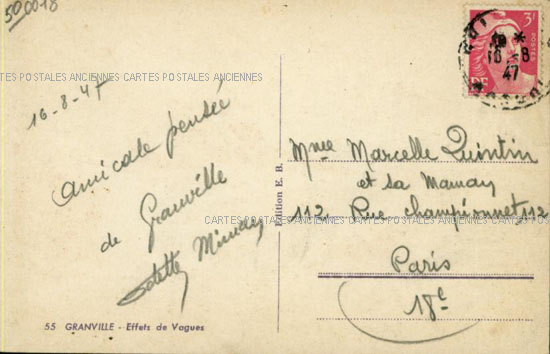 500018
3F
POSTES
RF
18 *
16-8
47
CARTES POSTALES ANCIENNES CARTES POSTALES ANCIENNES
16-8-47
amicale pensée
de Granville
Odette
Edition E. B.
Mme Marcelle Quintin
et sa Maman
112 Rue championnet 112
Paris
18e
CARTES POSTALES ANCIENNES CARTES POSTALES ANCIENNES
55 GRANVILLE - Effets de Vagues